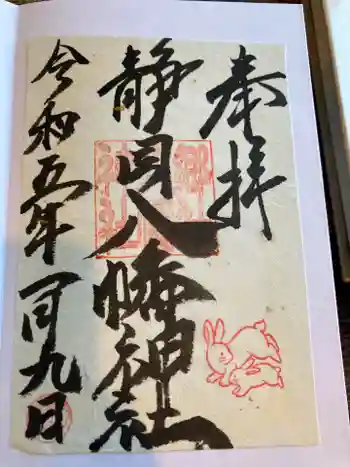 奉拝
静岡八幡神社
令和五年一月九日